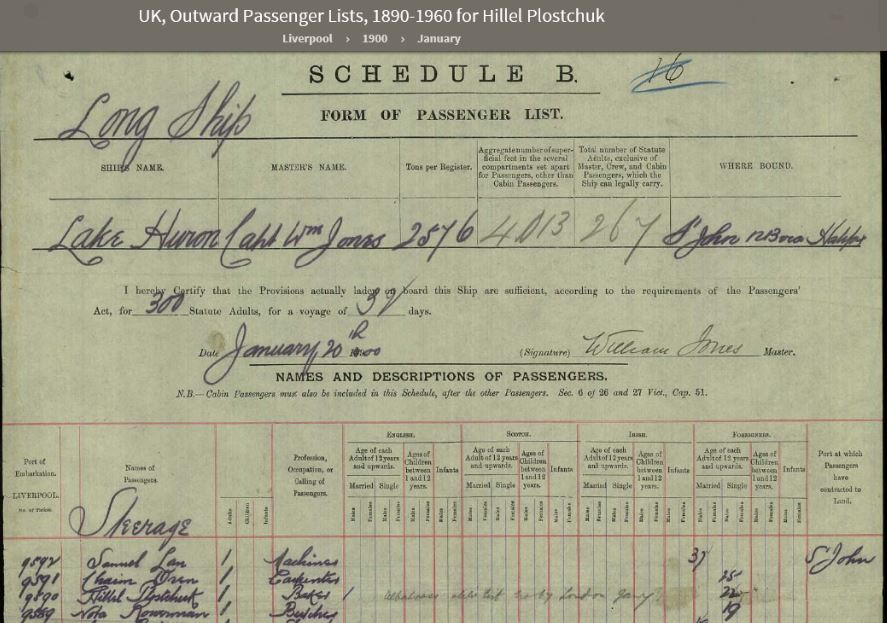 UK, Outward Passenger Lists, 1890-1960 for Hillel Plostchuk
Liverpool › 1900 › January
SCHEDULE B.
16
Long Ship
FORM OF PASSENGER LIST.
SHIP'S NAME. MASTER'S NAME. Tons per Register. Aggregate number of superficial feet in the several compartments set apart for Passengers, other than Cabin Passengers. Total number of Statute Adults, exclusive of Master, Crew, and Cabin Passengers, which the Ship can legally carry. WHERE BOUND.
Lake Huron Capt Wm Jones 2576 4013 267 St John Halifax
I hereby Certify that the Provisions actually laden on board this Ship are sufficient, according to the requirements of the Passengers'
Act, for 300 Statute Adults, for a voyage of days.
Date January 20th (Signature) William Jones Master.
NAMES AND DESCRIPTIONS OF PASSENGERS.
N.B.—Cabin Passengers must also be included in this Schedule, after the other Passengers. Sec. 6 of 26 and 27 Vict., Cap. 51.
ENGLISH. SCOTCH. IRISH. FOREIGNERS.
Port of Embarkation. Names of Passengers. Profession, Occupation, or Calling of Passengers. Age of each Adult of 12 years and upwards. Ages of Children between 1 and 12 years. Infants Age of each Adult of 12 years and upwards. Ages of Children between 1 and 12 years. Infants Age of each Adult of 12 years and upwards. Ages of Children between 1 and 12 years. Infants Age of each Adult of 12 years and upwards. Ages of Children between 1 and 12 years. Infants Port at which Passengers have contracted to Land.
Married Single Married Single Married Single Married Single
LIVERPOOL.
No. of Ticket. Adults Children Infants Males Females Males Females Males Females Males Females Males Females Males Females Males Females Males Females Males Females Males Females Males Females Males Females Males Females Males Females Males Females Males Females
Steerage
9592 Samuel 1 37 St John
9591 Chaim 1 Carpenter 25
9590 Hillel Plostchuk 1 Baker 1 22
9589 1 Butcher 19